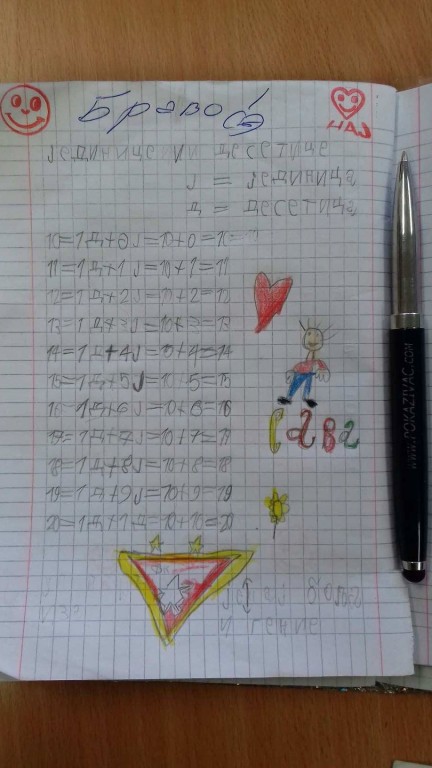 Браво
НАЈ
ЈЕДИНИЦЕ И ДЕСЕТИЦЕ
Ј = ЈЕДИНИЦА
Д = ДЕСЕТИЦА
10=1Д+0Ј=10+0=10
11=1Д+1Ј=10+1=11
12=1Д+2Ј=10+2=12
13=1Д+3Ј=10+3=13
14=1Д+4Ј=10+4=14
15=1Д+5Ј=10+5=15
16=1Д+6Ј=10+6=16
17=1Д+7Ј=10+7=17
18=1Д+8Ј=10+8=18
19=1Д+9Ј=10+9=19
20=1Д+1Д=10+10=20
Сава
И
WWW.POKAZIVAC.COM